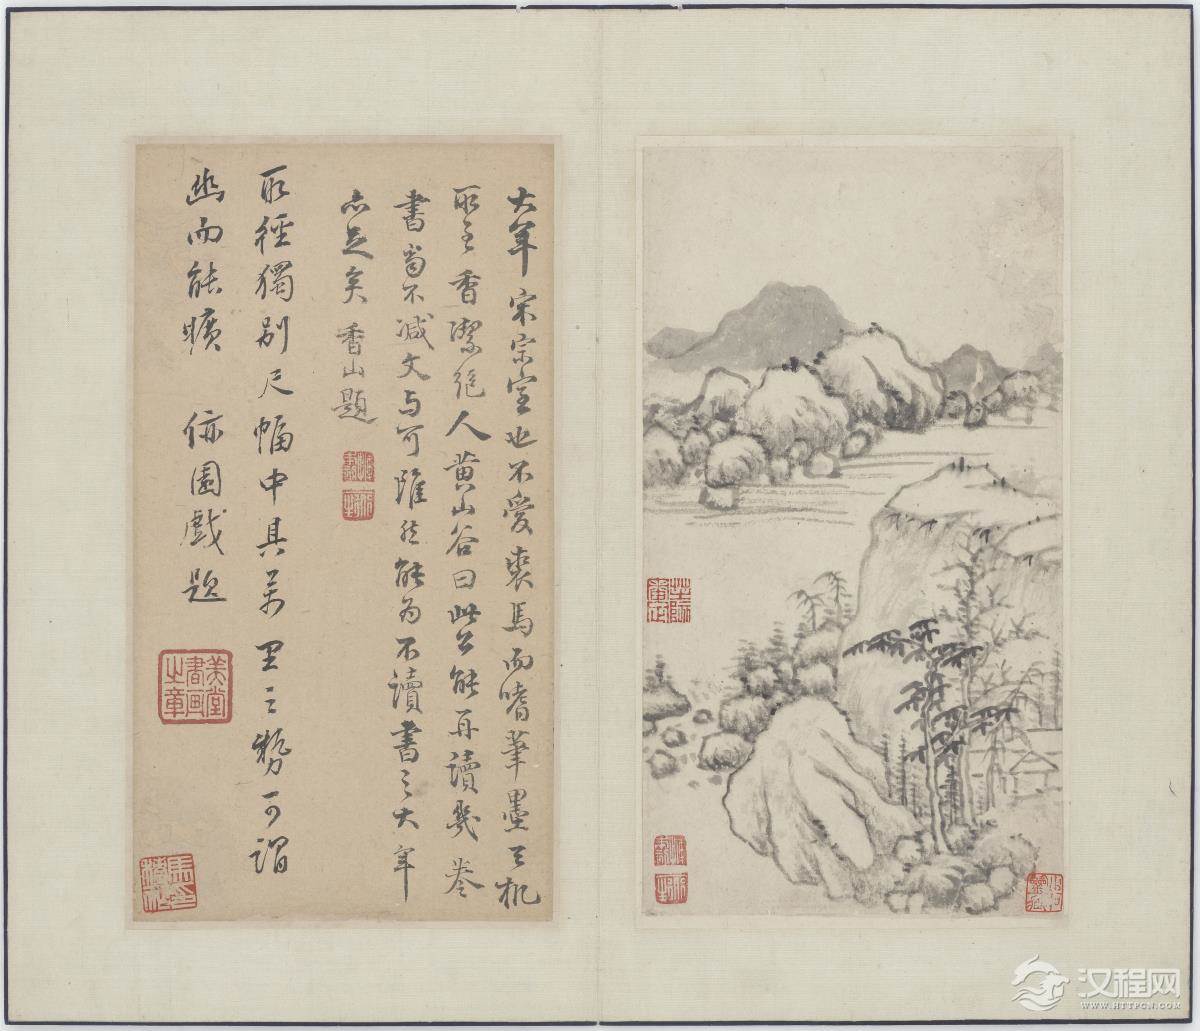 大年宋宗室也不愛裘馬而嗜筆墨天机
所至香潔絕人黃山谷曰此公能再讀幾卷
書當不減文与可雖然能為不讀書之大年
亦足矣 香山題
取徑獨別尺幅中具萬里之勢可謂
幽而能曠 園戲題
美堂書画之章
汉程网
WWW.HTTPCN.COM